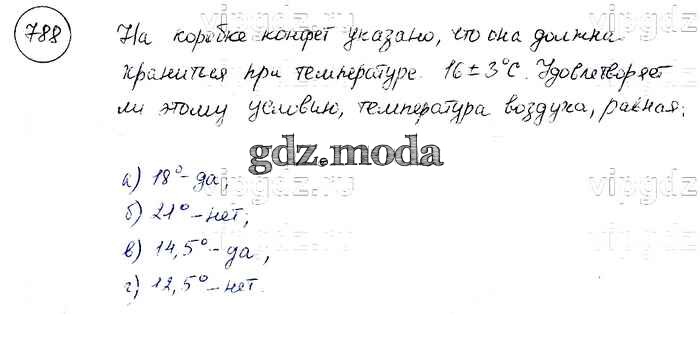 788
На коробке конфет указано, что она должна
храниться при температуре 16 ± 3°С. Удовлетворяет
ли этому условию, температура воздуха, равная:
gdz.moda
а) 18° - да;
б) 21° - нет;
в) 14,5° - да;
г) 12,5° - нет.
vipgdz
vipgdz
vipgdz
vipgdz
vipgdz
vipgdz